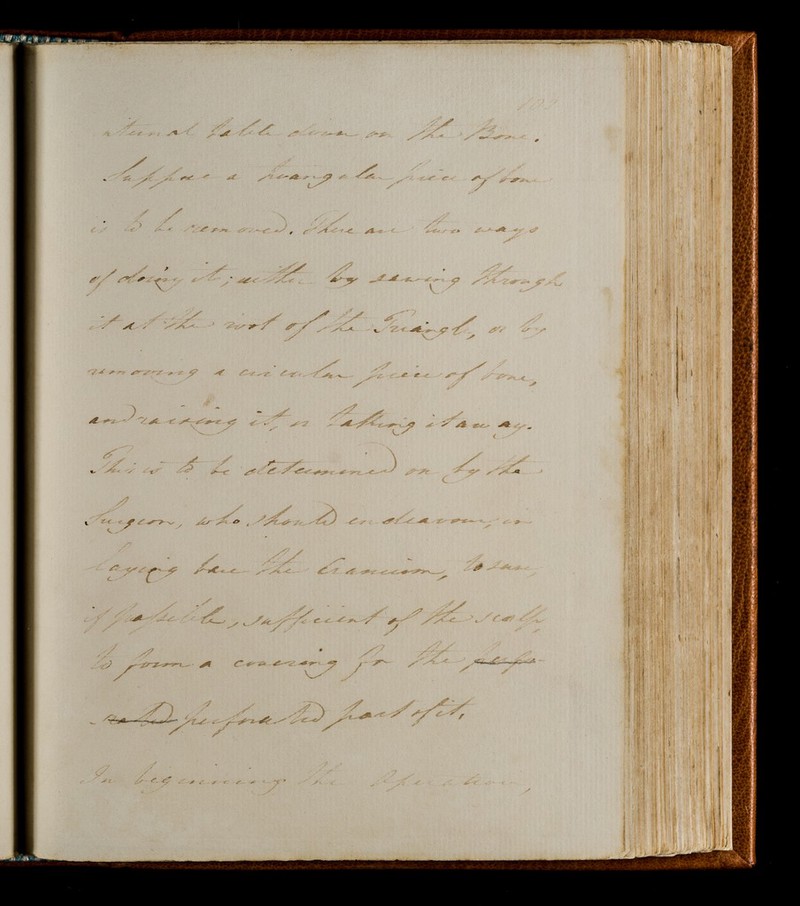 ternal table down on the Bone.
Suppose a triangular piece of bone
is to be removed. There are two ways
of doing it; either by sawing through
it at the root of the Triangle, or by
removing a circular piece of bone,
and raising it, or taking it away.
This is to be determined on by the
Surgeon, who should endeavour, in
laying bare the Cranium, to save,
if possible, sufficient of the scalp
to form a covering for the perfo-
rated perforated part of it.
In beginning the Operation,